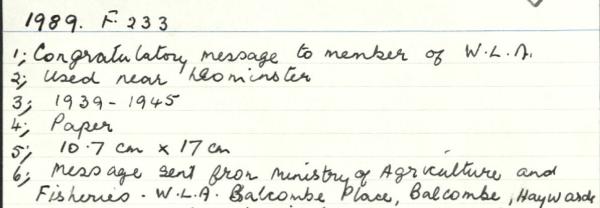 1989. F. 233
1; Congratulatory message to member of W.L.A.
2; Used near Leominster
3; 1939 - 1945
4; Paper
5; 10.7 cm x 17 cm
6; Message sent from Ministry of Agriculture and
Fisheries - W.L.A. Balcombe Place, Balcombe, Haywards